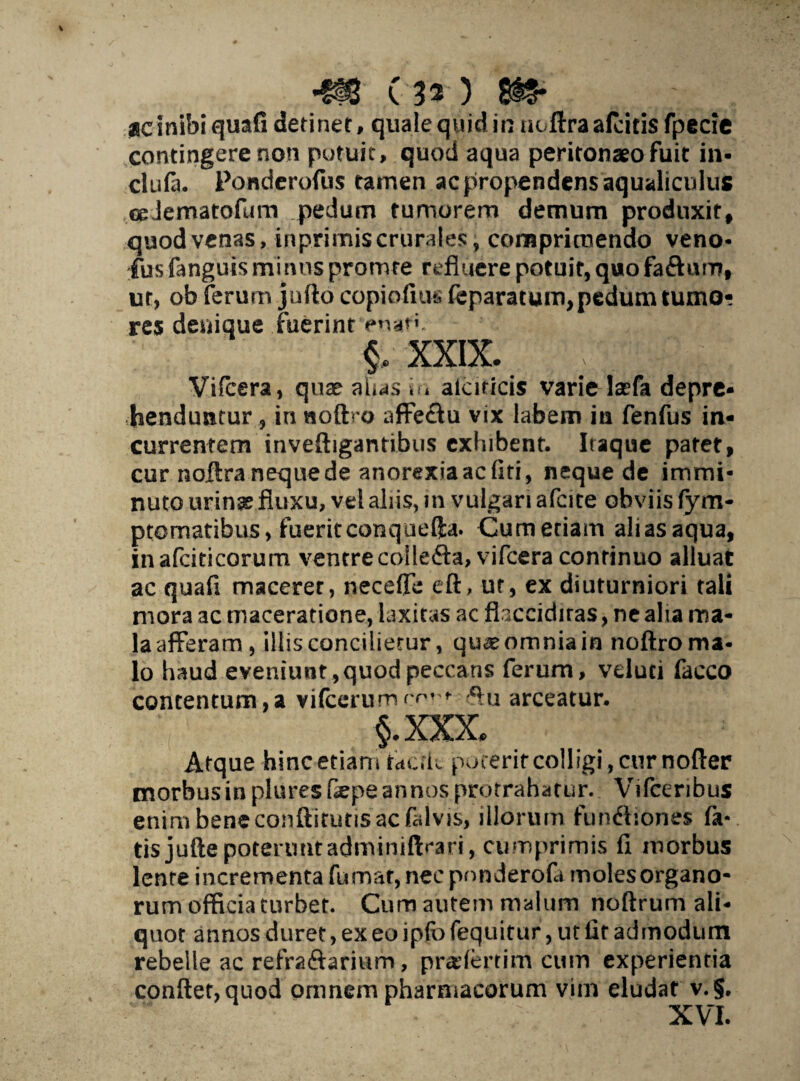 ( 32 )
ac inibi quaſi detinet, quale quid in noſtra aſcitis ſpecie
contingere non potuit, quod aqua peritonæo fuit in-
cluſa. Ponderoſus tamen ac propendens aqualiculus
œdematoſum pedum tumorem demum produxit,
quod venas, inprimis crurales, comprimendo veno-
ſus ſanguis minus promte refluere potuit, quo factum,
ut, ob ſerum juſto copioſius ſeparatum, pedum tumo-
res denique fuerint enati.
§. XXIX.
Viſcera, quæ alias in aſciticis varie læſa depre-
henduntur, in noſtro affectu vix labem in ſenſus in-
currentem inveſtigantibus exhibent. Itaque patet,
cur noſtra neque de anorexia ac ſiti, neque de immi-
nuto urinæ fluxu, vel aliis, in vulgari aſcite obviis ſym-
ptomatibus, fuerit conqueſta. Cum etiam alias aqua,
in aſciticorum ventre collecta, viſcera continuo alluat
ac quaſi maceret, neceſſe eſt, ut, ex diuturniori tali
mora ac maceratione, laxitas ac flacciditas, ne alia ma-
la afferam, illis concilietur, quæ omnia in noſtro ma-
lo haud eveniunt, quod peccans ſerum, veluti ſacco
contentum, a viſcerum arceatur.
§. XXX.
Atque hinc etiam facile poterit colligi, cur noſter
morbus in plures ſæpe annos protrahatur. Viſceribus
enim bene conſtitutis ac ſalvis, illorum functiones ſa-
tis juſte poterunt adminiſtrari, cumprimis ſi morbus
lente incrementa ſumat, nec ponderoſa moles organo-
rum officia turbet. Cum autem malum noſtrum ali-
quot annos duret, ex eo ipſo ſequitur, ut ſit admodum
rebelle ac refractarium, præſertim cum experientia
conſtet, quod omnem pharmacorum vim eludat v. §.
XVI.